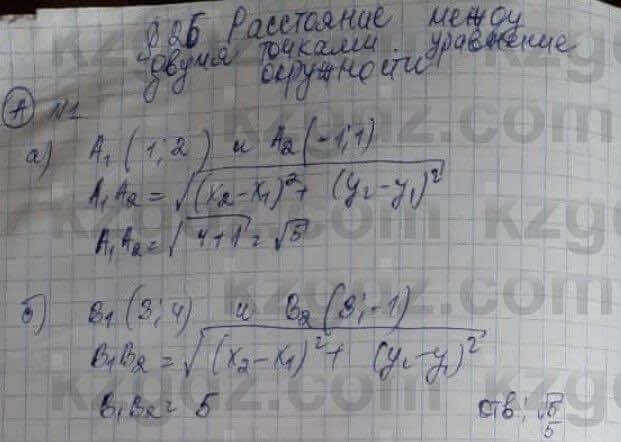 §26 Расстояние между
двумя точками уравнение
окружности
А №1
а) A₁(1; 2) и A₂(-1; 1)
A₁A₂ = √((x₂-x₁)² + (y₂-y₁)²)
A₁A₂ = √(4+1) = √5
б) B₁(3; 4) и B₂(3; -1)
B₁B₂ = √((x₂-x₁)² + (y₂-y₁)²)
B₁B₂ = 5 отв: √5
5
kzgoz.com